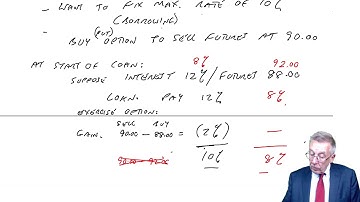 - WANT TO FIX MAX. RATE OF 10%
(BORROWING)
(PUT)
- BUY OPTION TO SELL FUTURES AT 90.00
AT START OF LOAN: 8% 92.00
SUPPOSE INTEREST 12% / FUTURES 88.00
LOAN: PAY 12% 8%
EXERCISE OPTION:
SELL BUY
GAIN. 90.00 - 88.00 = (2%) —
10% 8%